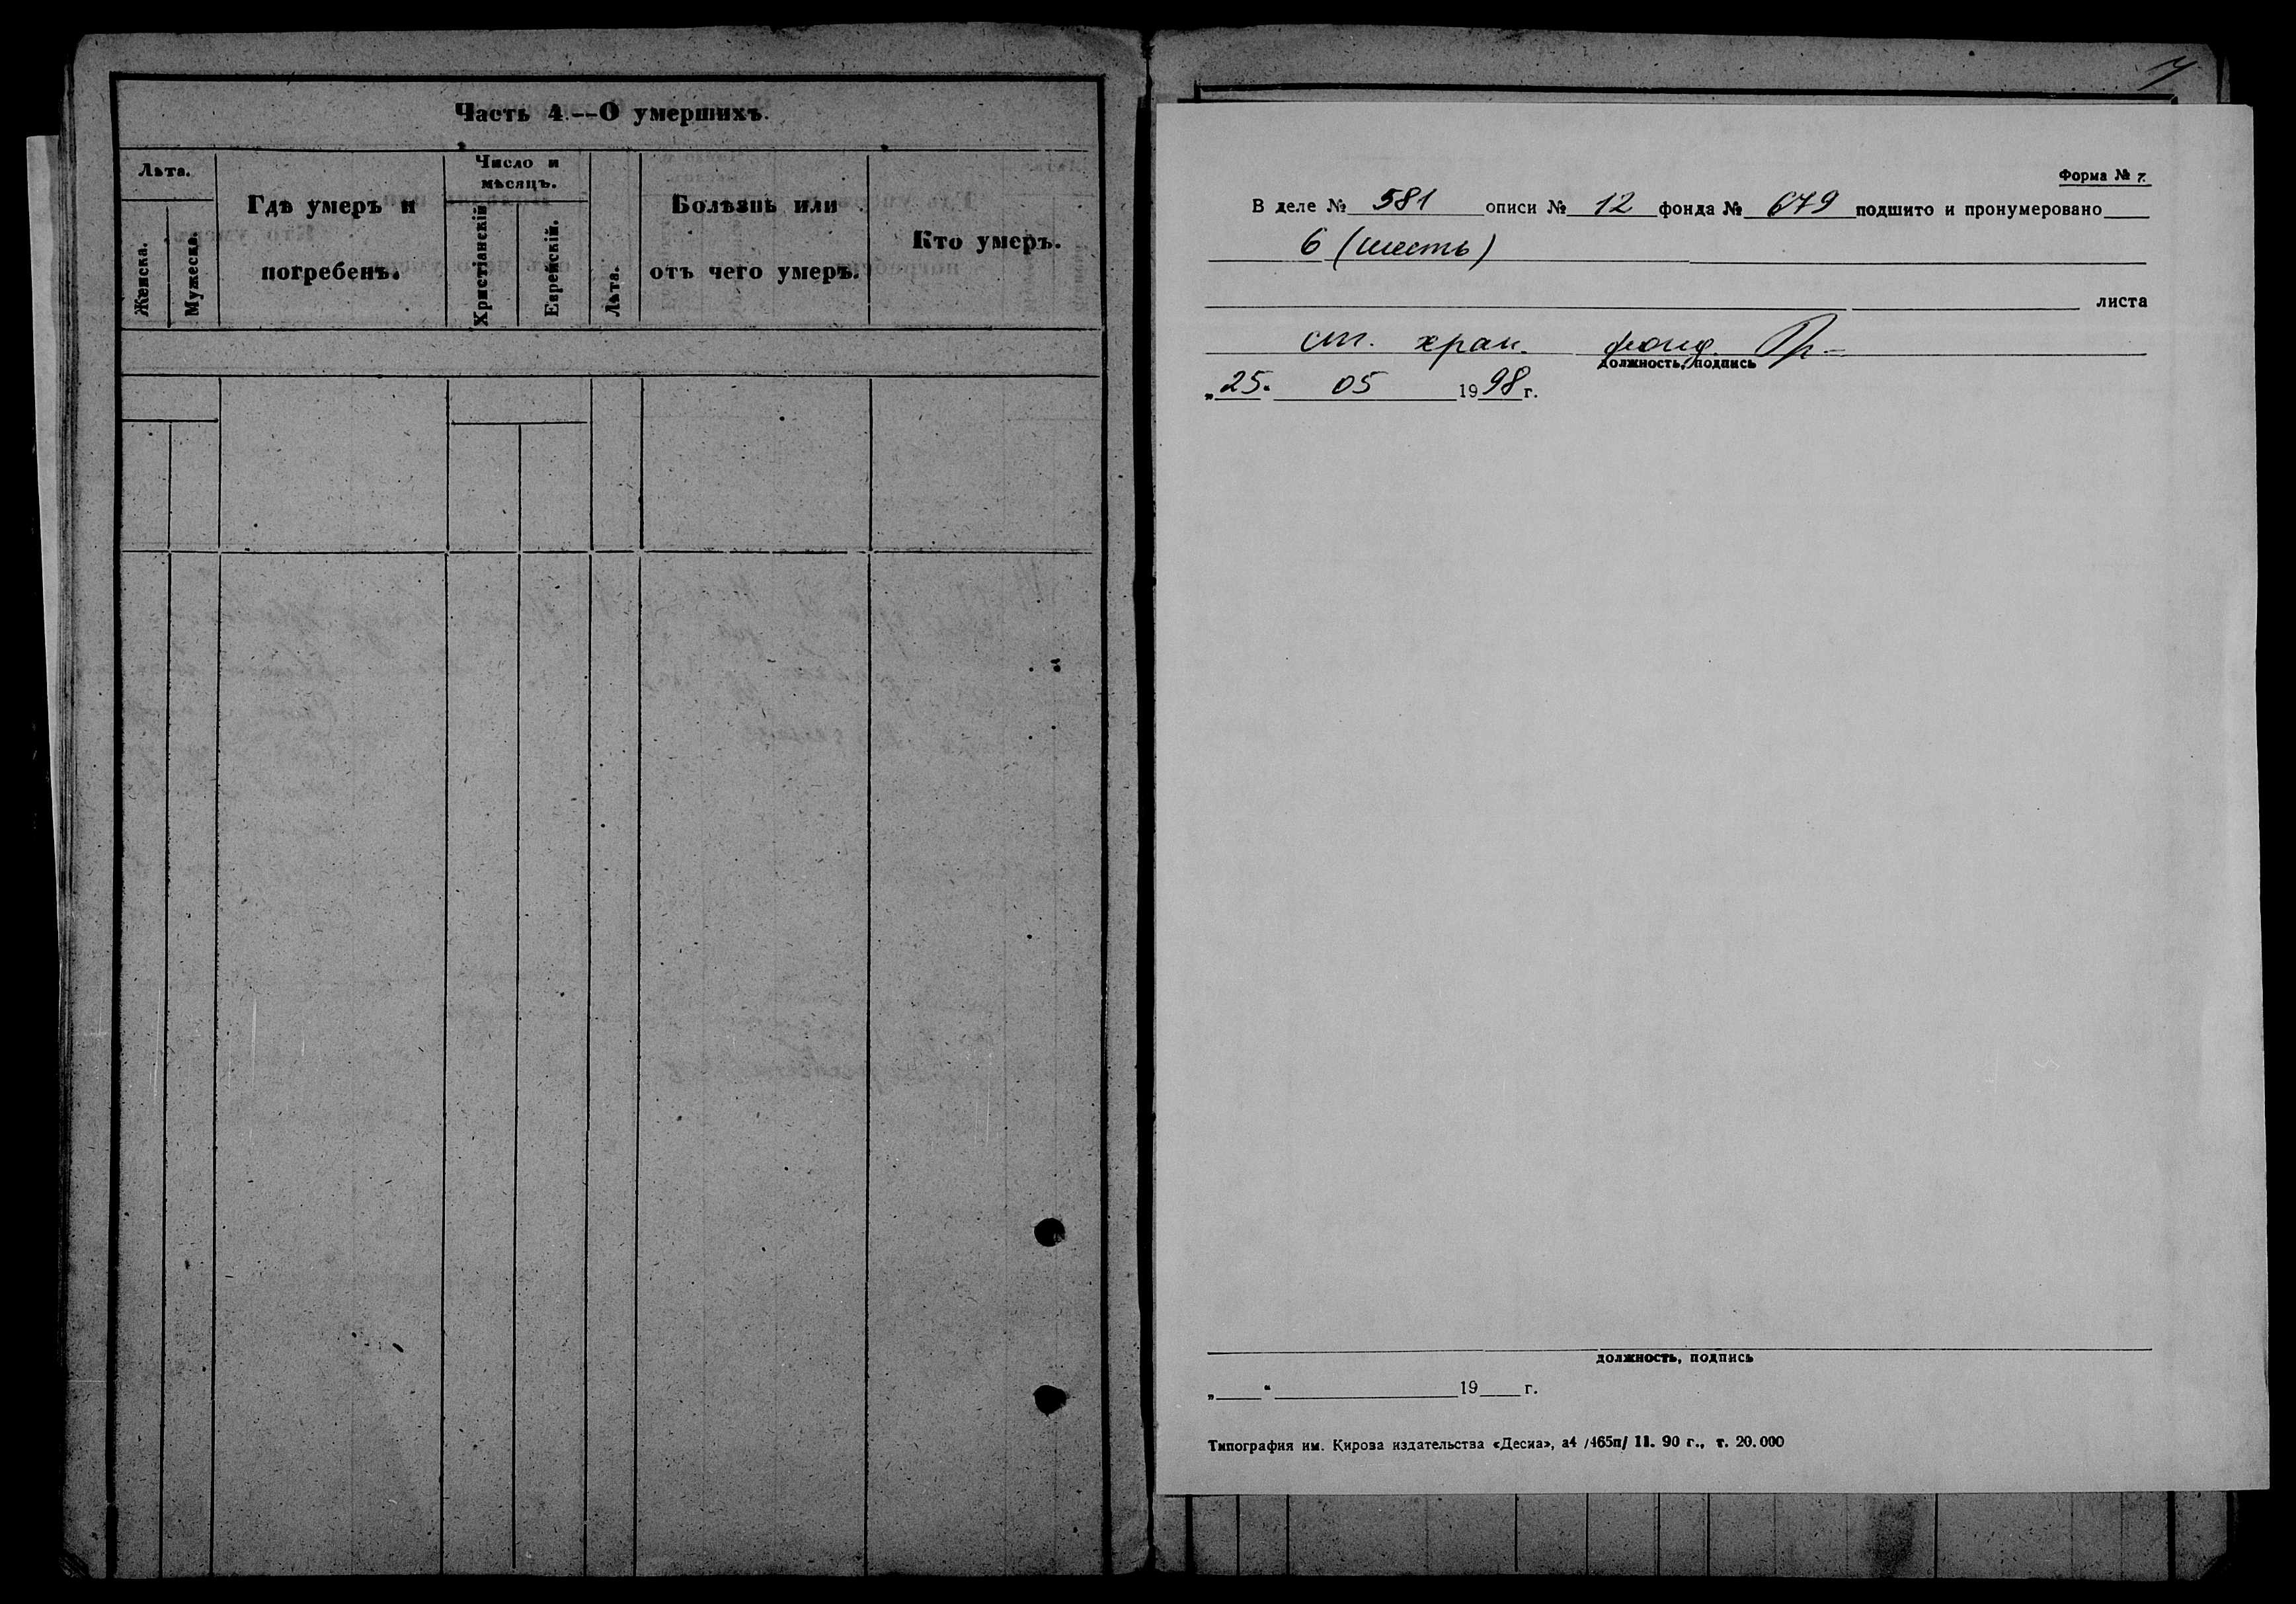 Часть 4.--О умершихъ.
Лѣта.
Женска.
Мужеска.
Гдѣ умеръ и
погребенъ.
Число и
мѣсяцъ.
Христіанскій
Еврейскій.
Лѣта.
Болѣзнь или
отъ чего умеръ.
Кто умеръ.
Форма № 7.
В деле № 581 описи № 12 фонда № 679 подшито и пронумеровано
6 (шесть)
листа
ст. хран. фонд.
должность, подпись
„25" 05 1998 г.
должность, подпись
„ " 19 г.
Типография им. Кирова издательства «Десна», а4 /465п/ 11. 90 г., т. 20.000